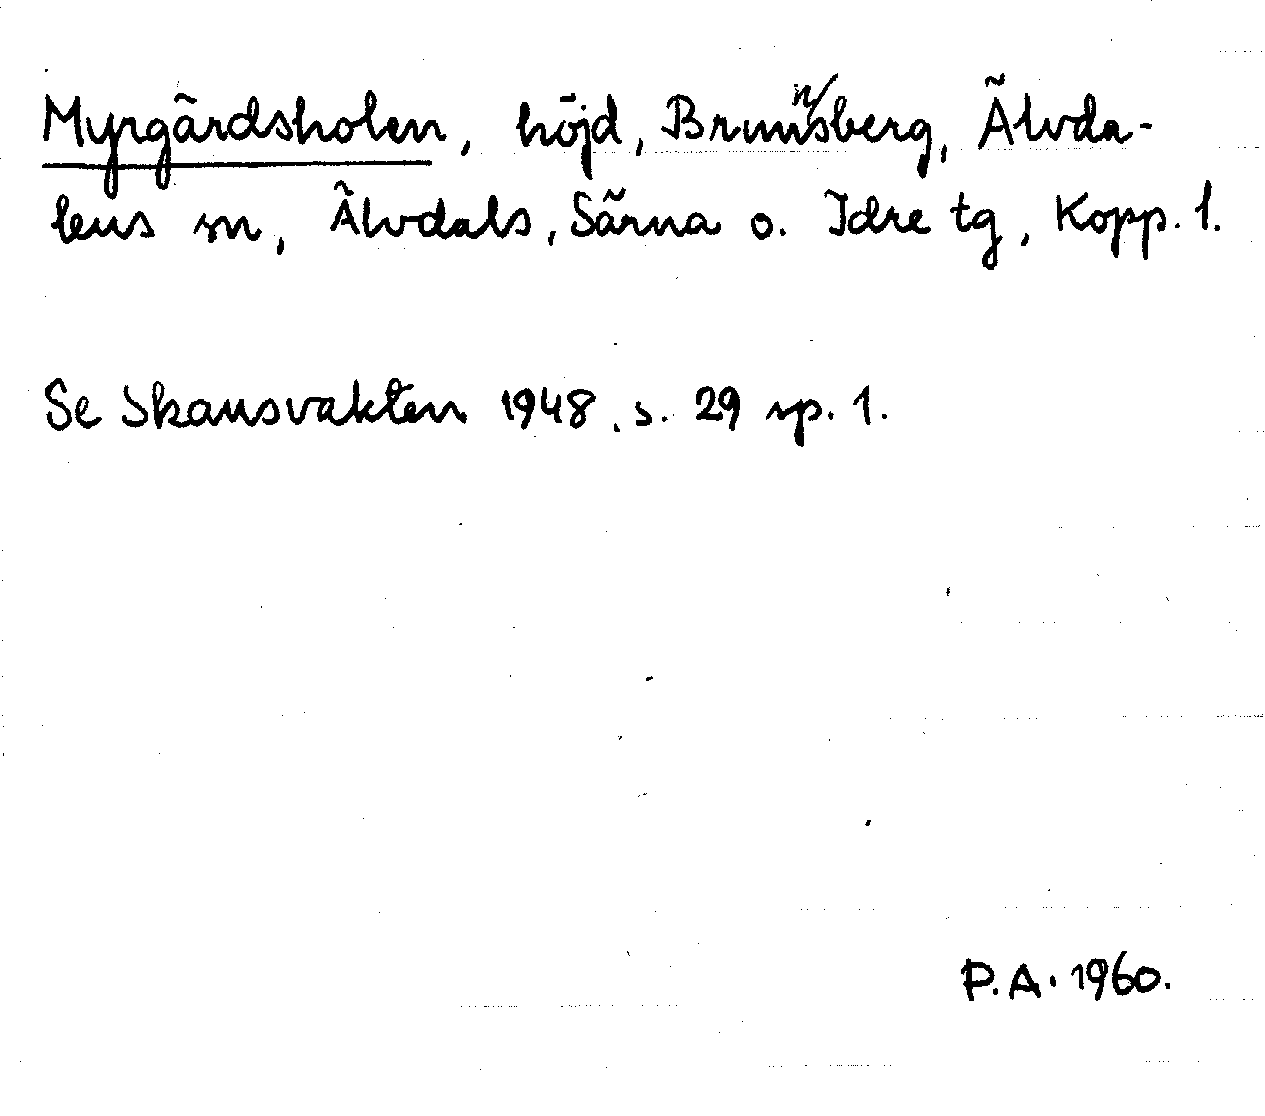 Myrgårdsholen, höjd, Brunnsberg, Älvda-
lens sn, Älvdals, Särna o. Idre tg, Kopp. l.
Se Skansvakten 1948, s. 29 sp. 1.
P.A. 1960.